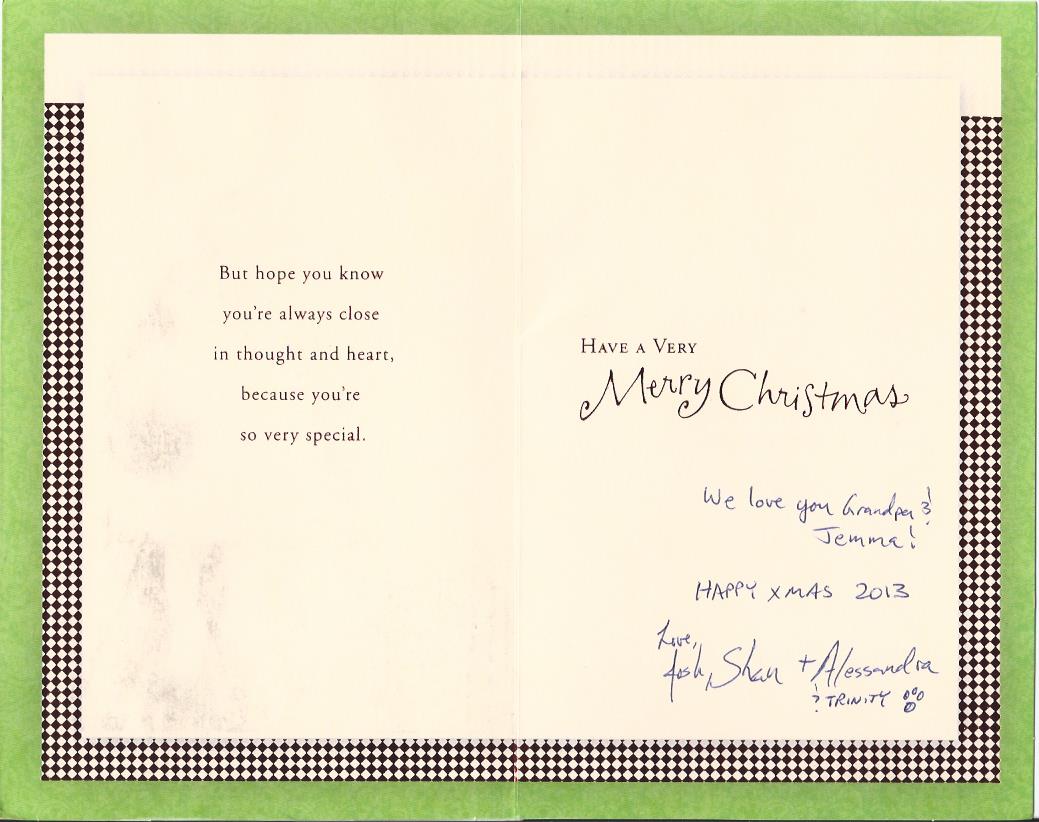 But hope you know
you're always close
in thought and heart,
because you're
so very special.
HAVE A VERY
Merry Christmas
We love you Grandpa &
Jemma!
HAPPY XMAS 2013
Love,
Josh, Shan + Alessandra
& TRINITY